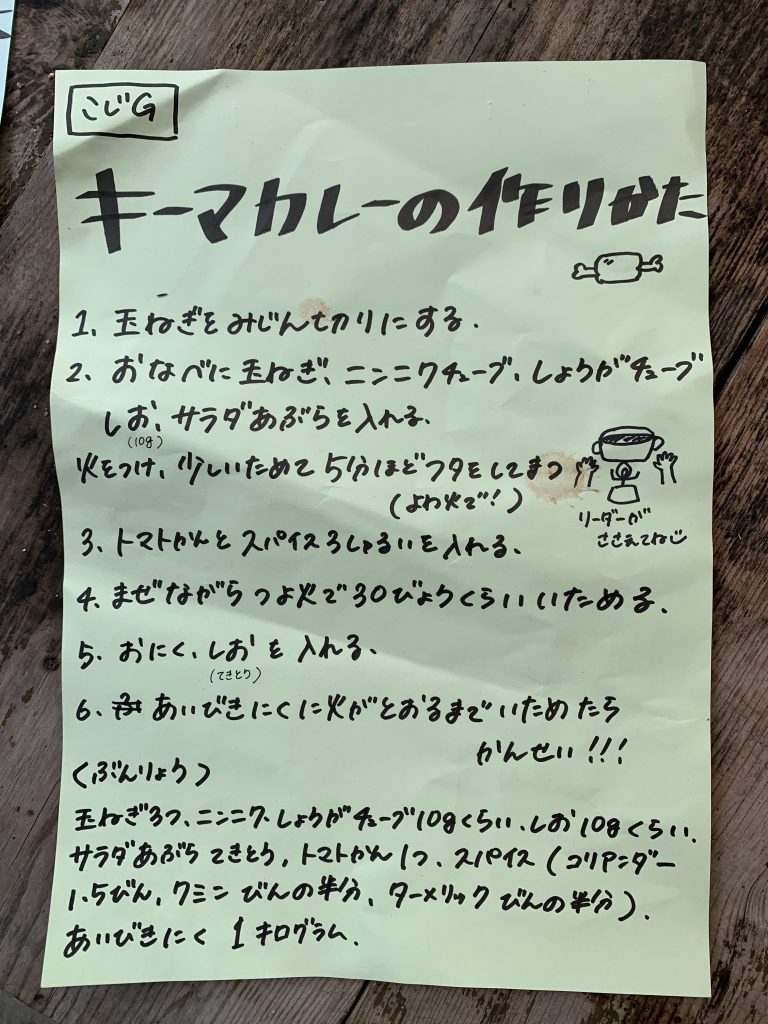 こじG
キーマカレーの作りかた
1、玉ねぎをみじん切りにする.
2、おなべに玉ねぎ、ニンニクチューブ、しょうがチューブ
しお、サラダあぶらを入れる.
(10g)
火をつけ、少しいためて5分ほどフタをしてまつ
(よわ火で!)
リーダーが
ささえてね
3、トマトかんとスパイス3しゅるいを入れる、
4、まぜながらつよ火で30びょうくらいいためる.
5、おにく、しおを入れる、
(てきとう)
6、あいびきにくに火がとおるまでいためたら
かんせい!!!
(ぶんりょう)
玉ねぎ3つ、ニンニク、しょうがチューブ10gくらい、しお10gくらい、
サラダあぶらてきとう, トマトかん1つ、スパイス(コリアンダー
1.5びん, クミンびんの半分、ターメリックびんの半分).
あいびきにく 1キログラム.